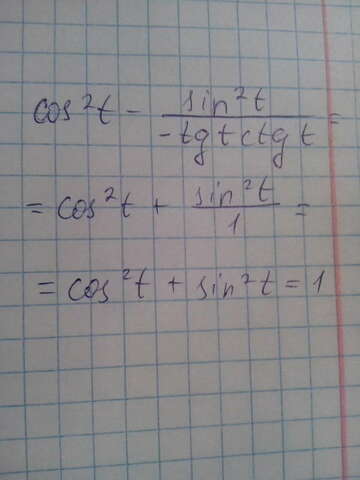 cos²t - sin²t / -tg t ctg t =
= cos²t + sin²t / 1 =
= cos²t + sin²t = 1